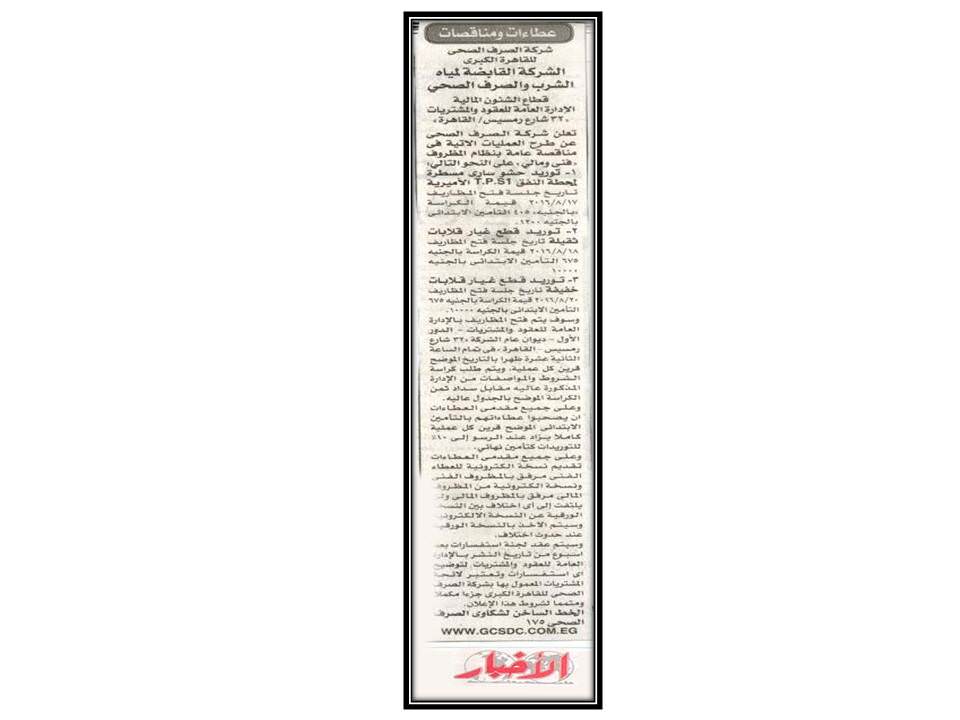 عطاءات ومناقصات
شركة الصرف الصحى
للقاهرة الكبرى
الشركة القابضة لمياه
الشرب والصرف الصحي
قطاع الشئون المالية
الإدارة العامة للعقود والمشتريات
٣٢٠ شارع رمسيس/ القاهرة،
تعلن شركة الصرف الصحى
عن طرح العمليات الاتية فى
مناقصة عامة بنظام المظروف
«فني ومالي» على النحو التالي:
١- توريد حشو سارى مسطرة
لمحطة النفق T.P.S1 الأميرية
تاريخ جلسة فتح المظاريف
٢٠١٦/٨/١٧ قيمة الكراسة
«بالجنيه» ٤٠٥ التأمين الابتدائى
بالجنيه ١٢٠٠
٢- توريد قطع غيار قلابات
ثقيلة تاريخ جلسة فتح المظاريف
٢٠١٦/٨/١٨ قيمة الكراسة بالجنيه
٦٧٥ التأمين الابتدائى بالجنيه
١٠٠٠٠
٣- توريد قطع غيار قلابات
خفيفة تاريخ جلسة فتح المظاريف
٢٠١٦/٨/٢٠ قيمة الكراسة بالجنيه ٦٧٥
التأمين الابتدائى بالجنيه ١٠٠٠٠.
وسوف يتم فتح المظاريف بالإدارة
العامة للعقود والمشتريات - الدور
الأول - ديوان عام الشركة ٣٢٠ شارع
رمسيس - القاهرة، فى تمام الساعة
الثانية عشرة ظهرا بالتاريخ الموضح
قرين كل عملية، ويتم طلب كراسة
الشروط والمواصفات من الإدارة
المذكورة عاليه مقابل سداد ثمن
الكراسة الموضح بالجدول عاليه.
وعلى جميع مقدمى العطاءات
ان يصحبوا عطاءاتهم بالتأمين
الابتدائى الموضح قرين كل عملية
كاملا يزاد عند الرسو إلى ١٠٪
للتوريدات كتأمين نهائي.
وعلى جميع مقدمى العطاءات
تقديم نسخة الكترونية للعطاء
الفنى مرفق بالمظروف الفنى
ونسخة الكترونية من المظروف
المالى مرفق بالمظروف المالى ولن
يلتفت إلى أى اختلاف بين النسخ
الورقية عن النسخة الالكترونية
وسيتم الاخذ بالنسخة الورقية
عند حدوث اختلاف.
وسيتم عقد لجنة استفسارات بعد
اسبوع من تاريخ النشر بالإدارة
العامة للعقود والمشتريات لتوضيح
اى استفسارات وتعتبر لائحة
المشتريات المعمول بها بشركة الصرف
الصحى للقاهرة الكبرى جزءا مكملا
ومتمما لشروط هذا الإعلان.
الخط الساخن لشكاوى الصرف
الصحى ١٧٥
WWW.GCSDC.COM.EG
الأخبار